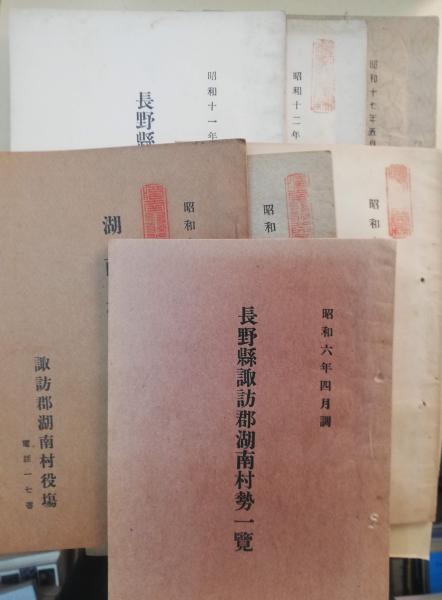 昭和十一年
長野縣
昭和十二年
昭和十七年
昭和
湖
諏訪郡湖南村役場
電話一七番
昭和
昭和
昭和六年四月調
長野縣諏訪郡湖南村勢一覽